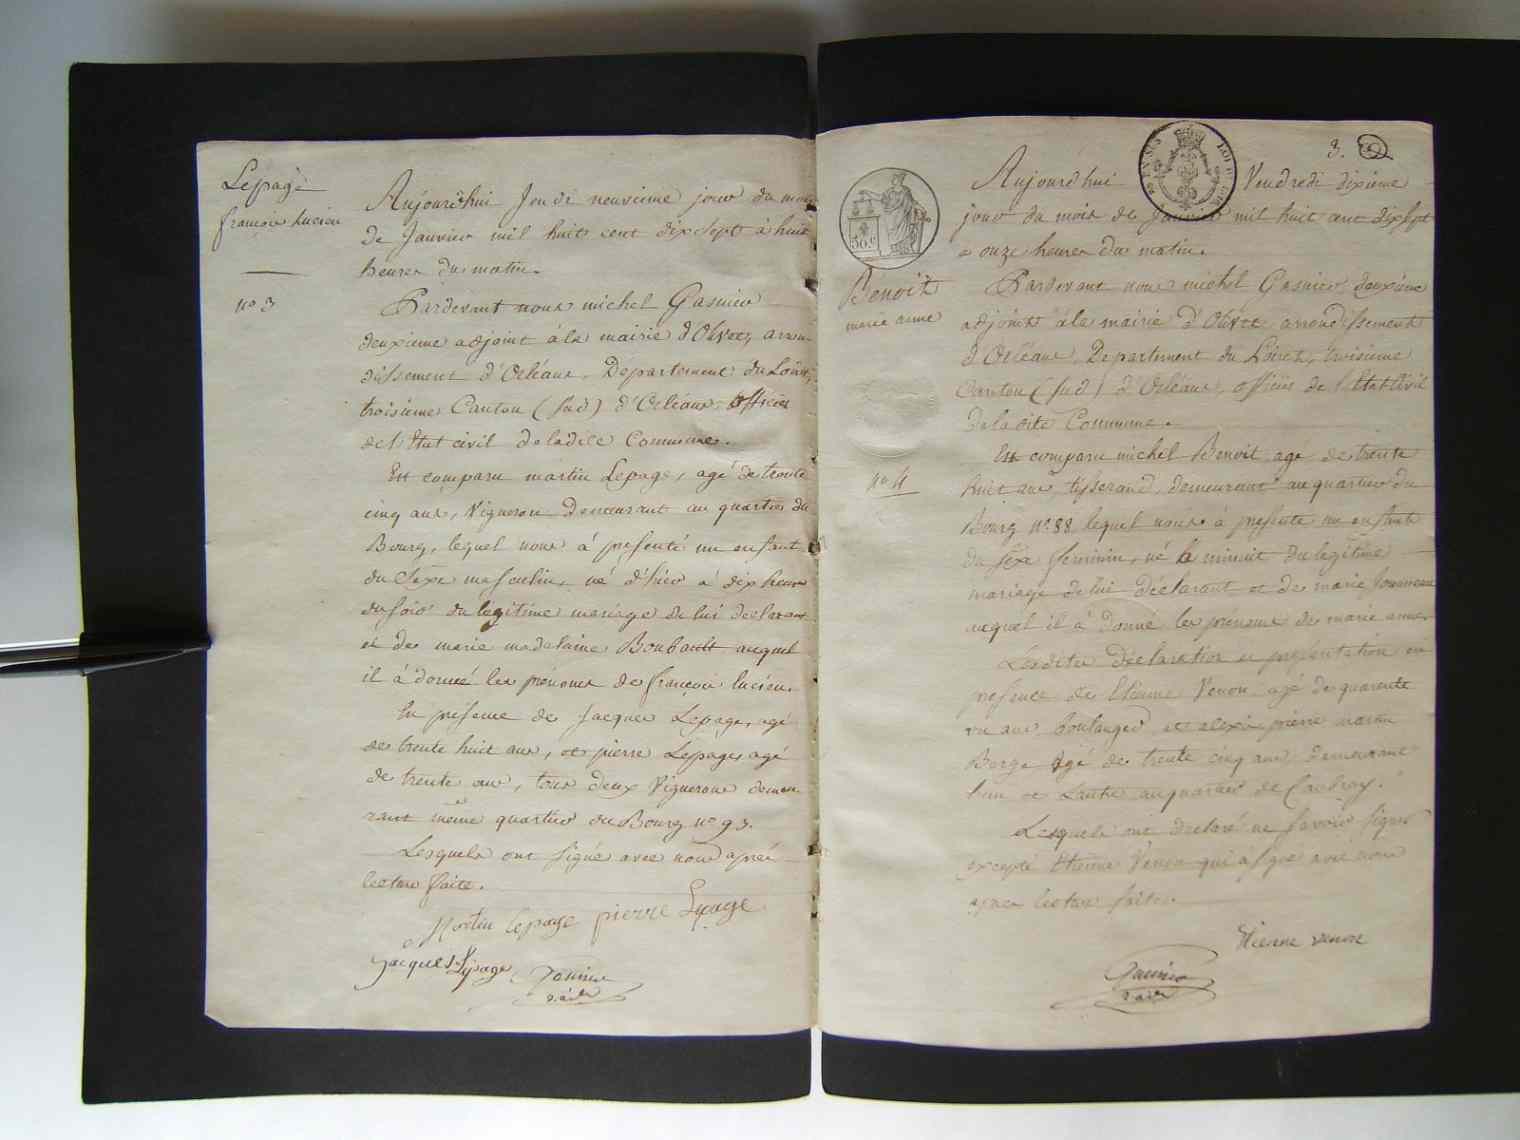 Lepage
françois Lucien
no 3
Aujourd'hui Jeudi neuvieme jour du mois
de Janvier mil huit cent dix sept à huit
heures du matin.
Pardevant nous michel Gasnier
deuxieme adjoint à la mairie d'Olivet, arron-
dissement d'Orléans, Département du Loiret,
troisieme Canton (sud) d'Orléans, Officier
de l'Etat civil de ladite Commune.
Est comparu martin Lepage, agé de trente
cinq ans, Vigneron demeurant au quartier du
Bourg, lequel nous à présenté un enfant
du Sexe masculin, né d'hier à dix heures
du soir du légitime mariage de lui declarant
et de marie madelaine Boubault auquel
il à donné les prénoms de françois lucien.
En présence de Jacques Lepage, agé
de trente huit ans, et pierre Lepage, agé
de trente ans, tous deux Vignerons demeu-
rant même quartier du Bourg no 93.
Lesquels ont signé avec nous après
lecture faite.
Martin lepage pierre Lepage
Jacques Lepage Gasnier
3. 2
EN SUS
30.c
Benoit
marie anne
no 4
Aujourd'hui Vendredi dixieme
jour du mois de Janvier mil huit cent dix sept
a onze heures du matin.
Pardevant nous michel Gasnier deuxieme
adjoint à la mairie d'Olivet arrondissement
d'Orléans, Departement du Loiret, troisieme
Canton (sud) d'Orléans, officier de l'Etat Civil
de ladite Commune.
Est comparu michel Benoit agé de trente
huit ans tisserand, demeurant au quartier du
Bourg no. 88 lequel nous à présenté un enfant
du sexe feminin, né à minuit du légitime
mariage de lui déclarant et de marie
auquel il à donné les prenoms de marie anne.
Lesdites déclaration et présentation en
présence de Etienne Venon agé de quarante
ans boulanger et alexis pierre
Berge agé de trente cinq ans demeurant
l'un et L'autre au quartier de
Lesquels ont declaré ne savoir signer
excepté Etienne Venon qui à signé avec nous
apres lecture faite.
Etienne venon
Gasnier